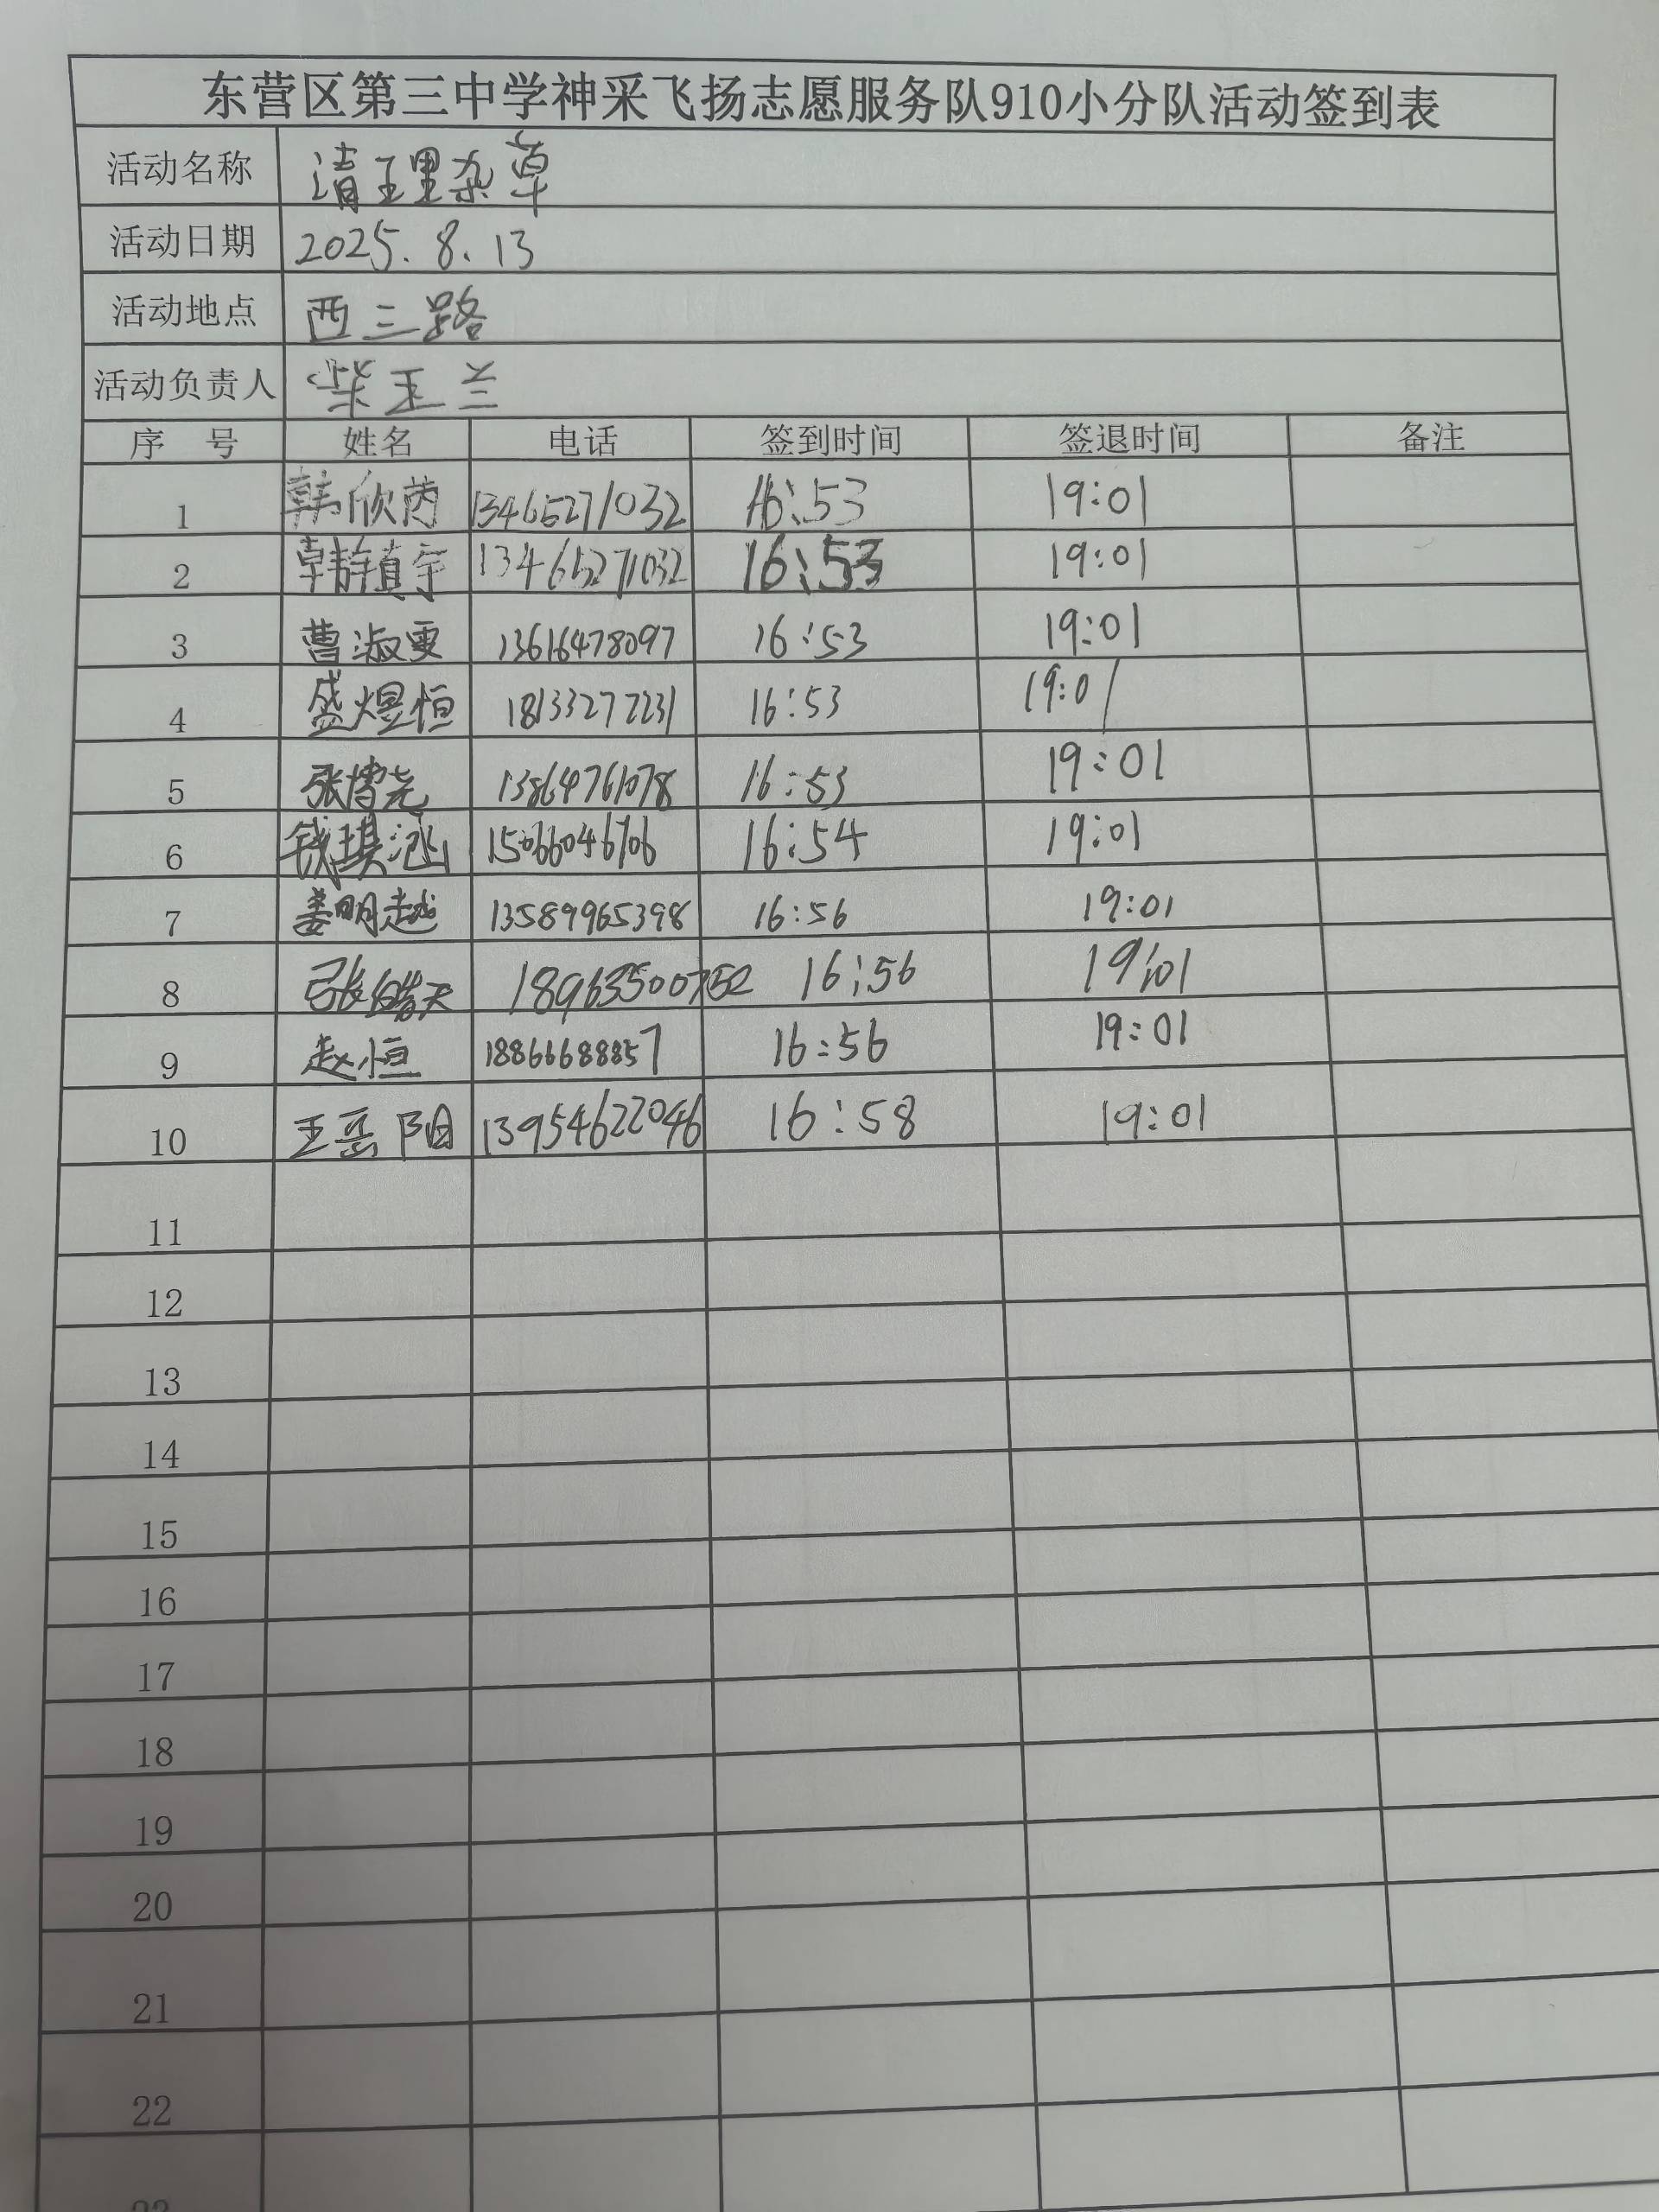 东营区第三中学神采飞扬志愿服务队910小分队活动签到表
活动名称 清理杂草
活动日期 2025.8.13
活动地点 西三路
活动负责人 柴玉兰
序 号 姓名 电话 签到时间 签退时间 备注
1 韩欣芮 13465271032 16:53 19:01
2 韩镇宇 13465271032 16:53 19:01
3 曹淑雯 13616478097 16:53 19:01
4 盛煜恒 18133272231 16:53 19:01
5 张博尧 13864761078 16:53 19:01
6 钱琪涵 15066046706 16:54 19:01
7 姜明越 13589965398 16:56 19:01
8 张皓天 18963500752 16:56 19:01
9 赵恒 18866688857 16:56 19:01
10 王岳阳 13954622046 16:58 19:01
11
12
13
14
15
16
17
18
19
20
21
22